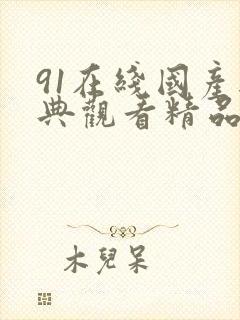 91在綫國產
典觀看精品
木兒呆